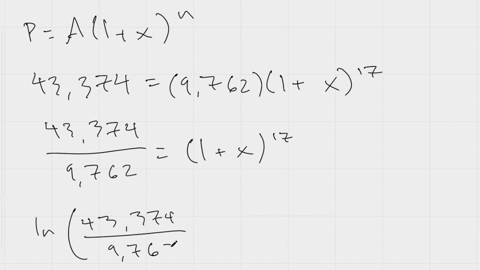 P = A(1+x)^n
43,374 = (9,762)(1+ x)^17
43,374/9,762 = (1+x)^17
ln (43,374/9,76